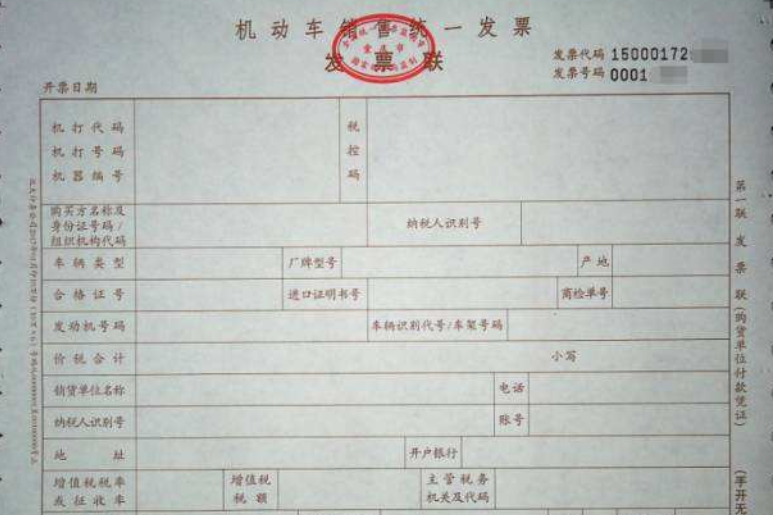 机动车销售统一发票
发票联
发票代码 15000172
发票号码 0001
开票日期
机打代码
机打号码
机器编号
税控码
购买方名称及
身份证号码/
组织机构代码
纳税人识别号
车辆类型
厂牌型号
产地
合格证号
进口证明书号
商检单号
发动机号码
车辆识别代号/车架号码
价税合计
小写
销货单位名称
电话
纳税人识别号
账号
地址
开户银行
增值税税率
或征收率
增值税
税额
主管税务
机关及代码
第一联 发票联(购货单位付款凭证)
(手开无